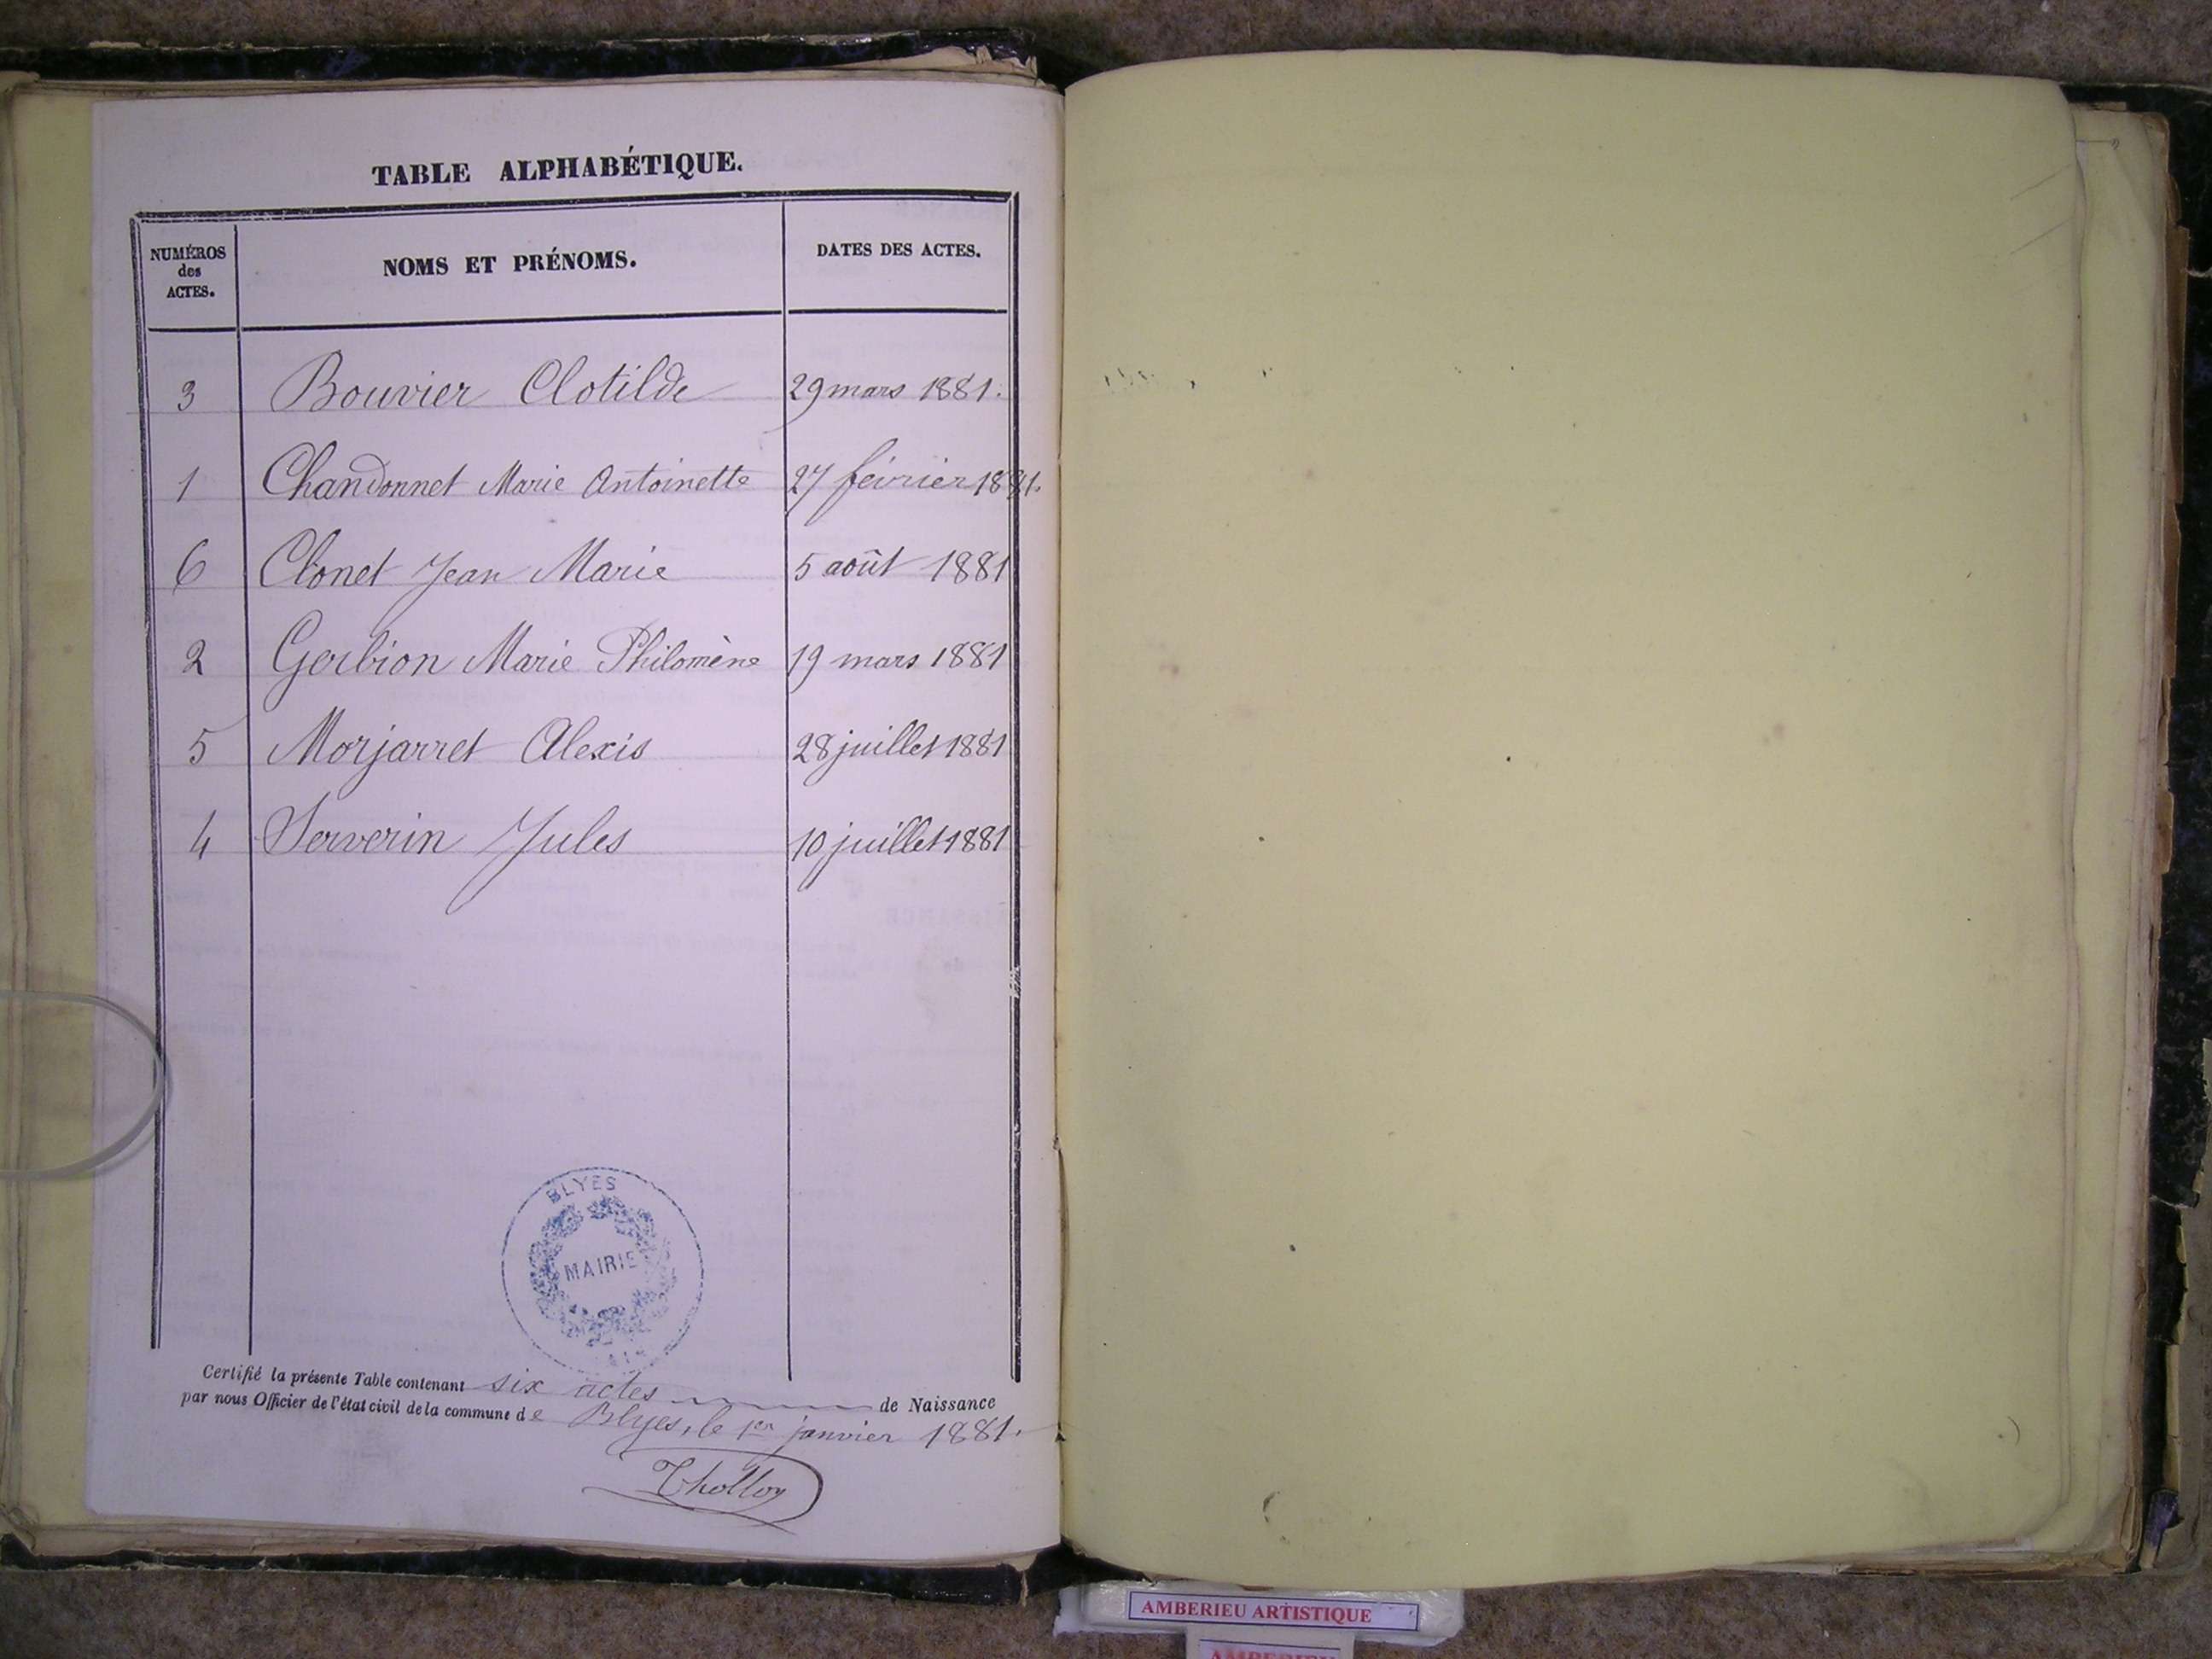 TABLE ALPHABÉTIQUE.
NUMÉROS
des
ACTES.
NOMS ET PRÉNOMS.
DATES DES ACTES.
3 Bouvier Clotilde 29 mars 1881.
1 Chandonnet Marie Antoinette 27 février 1881.
6 Clonet Jean Marie 5 août 1881
2 Gerbion Marie Philomène 19 mars 1881
5 Morjarret Alexis 28 juillet 1881
4 Serverin Jules 10 juillet 1881
BLYES
MAIRIE
AIN
Certifié la présente Table contenant six actes de Naissance
par nous Officier de l'état civil de la commune de Blyes, le 1er janvier 1881.
Thollon
AMBERIEU ARTISTIQUE
AMBERIEU